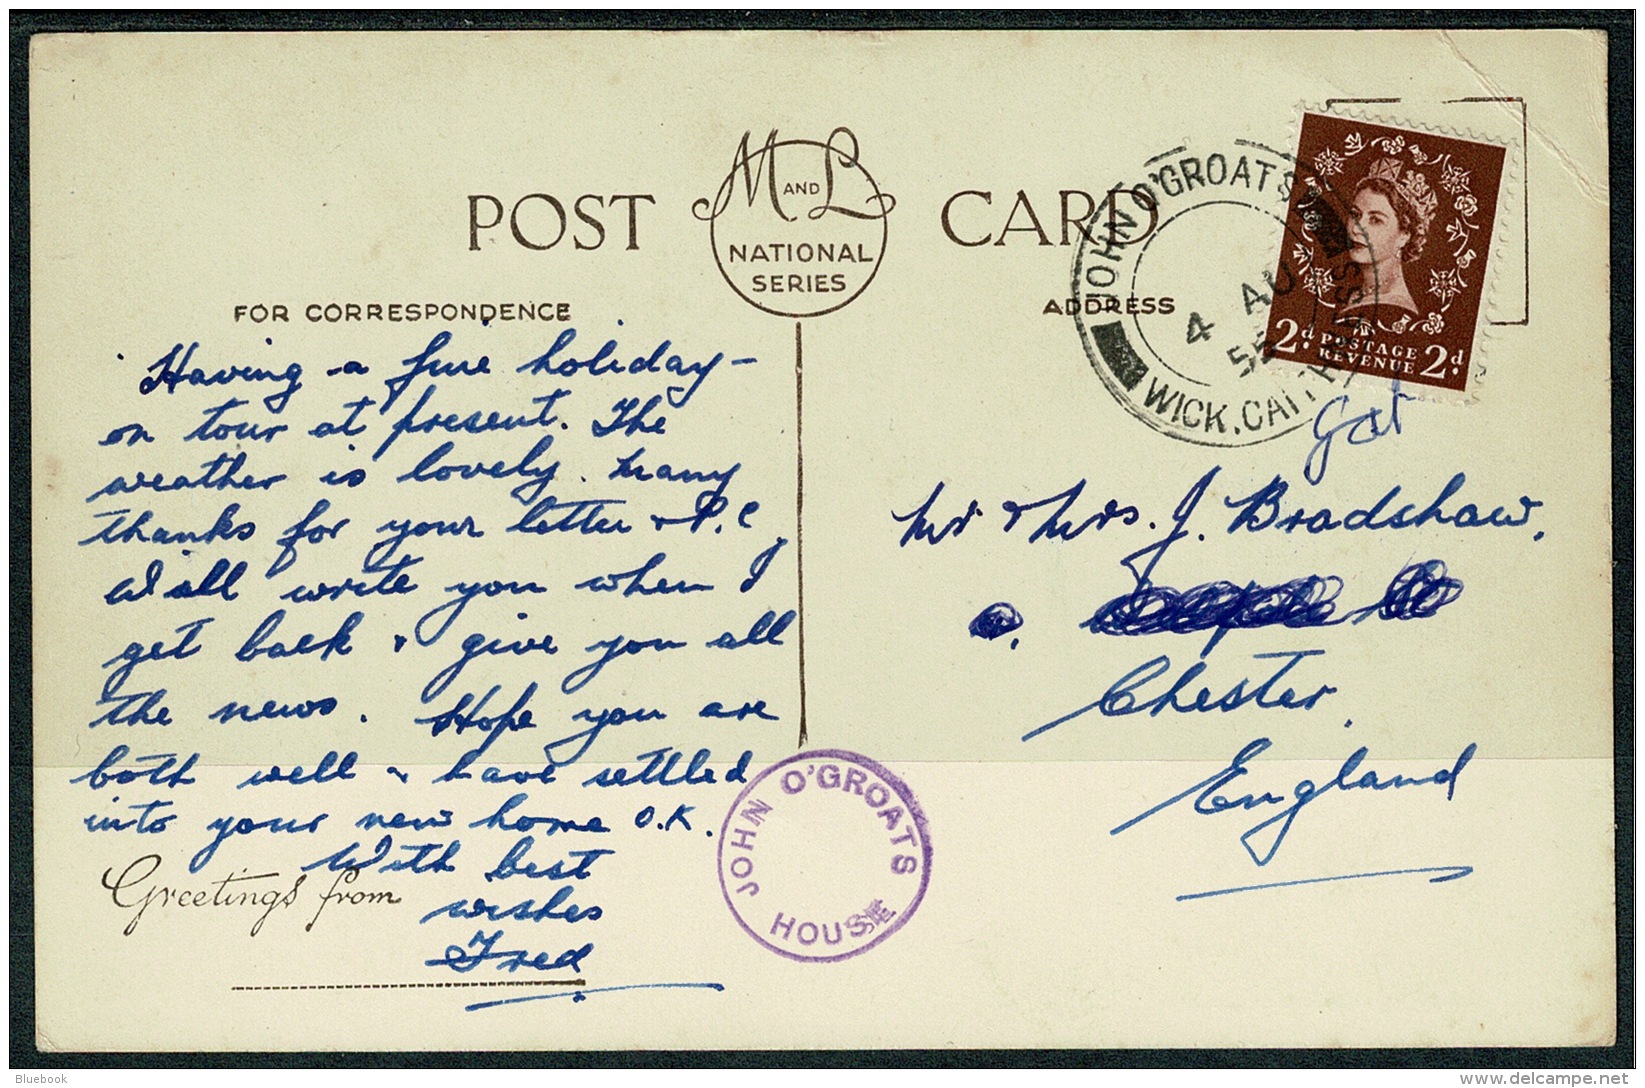 POST
M AND L
NATIONAL
SERIES
CARD
FOR CORRESPONDENCE
ADDRESS
JOHN O'GROATS
4 AU
55
WICK, CAITHNESS
2d. POSTAGE 2d.
REVENUE
Having a fine holiday -
on tour at present. The
weather is lovely. Many
thanks for your letter & P.C,
Will write you when I
get back & give you all
the news. Hope you are
both well & have settled
into your new home O.K.
With best
wishes
Fred
Greetings from
Mr & Mrs. J. Bradshaw,
Chester,
England
JOHN O'GROATS
HOUSE
Bluebook
delcampe.net